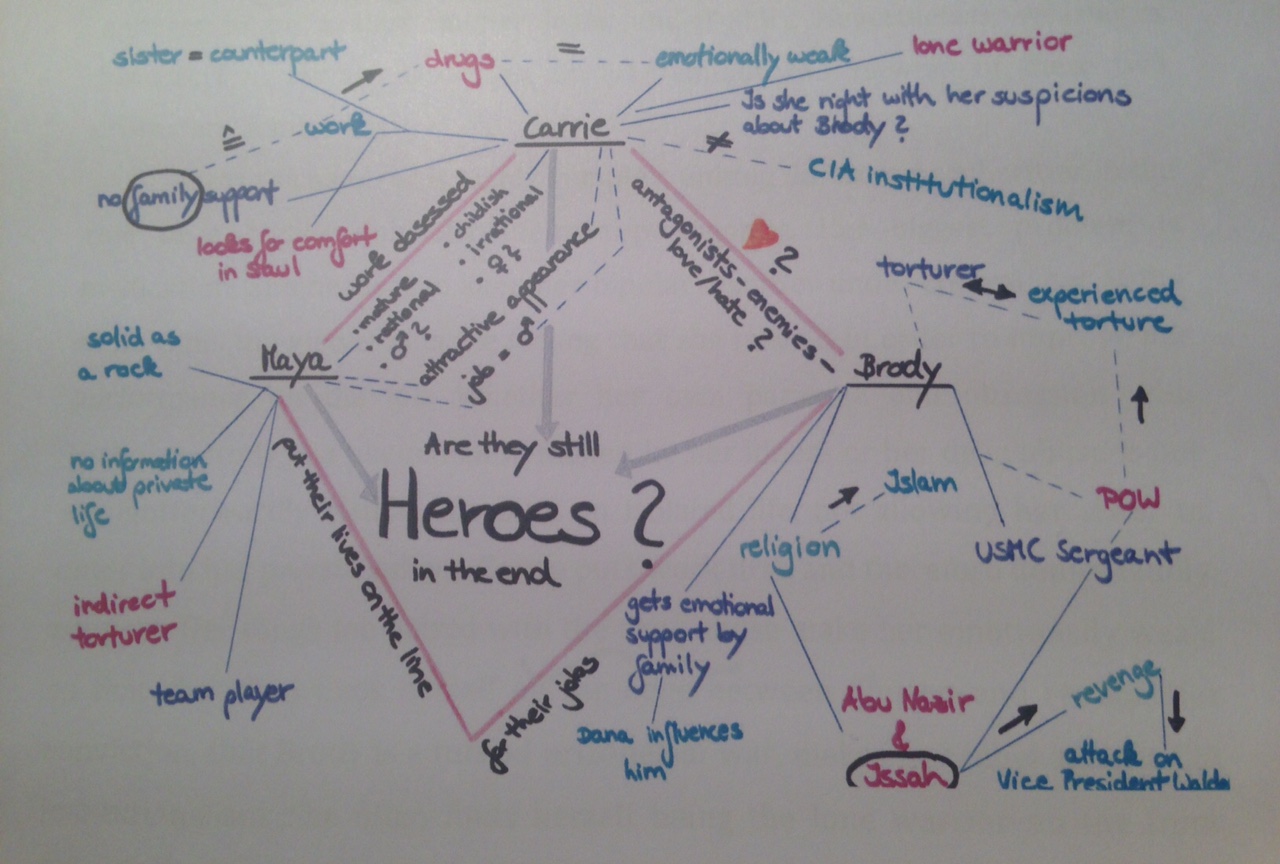 sister = counterpart
drugs
=
emotionally weak
lone warrior
work
Carrie
Is she right with her suspicions
about Brody ?
≙
≠
CIA institutionalism
no family support
looks for comfort
in Saul
work obsessed
• childish
• irrational
• ♀?
• mature
• rational
• ♂?
attractive appearance
job = ♂
antagonists - enemies -
love/hate ?
?
torturer
experienced
torture
solid as
a rock
Maya
Brody
Are they still
Heroes ?
in the end
no information
about private
life
put their lives on the line
for their jobs
Islam
religion
POW
USMC Sergeant
indirect
torturer
team player
gets emotional
support by
family
Dana influences
him
Abu Nazir
&
Issah
revenge
attack on
Vice President Walde